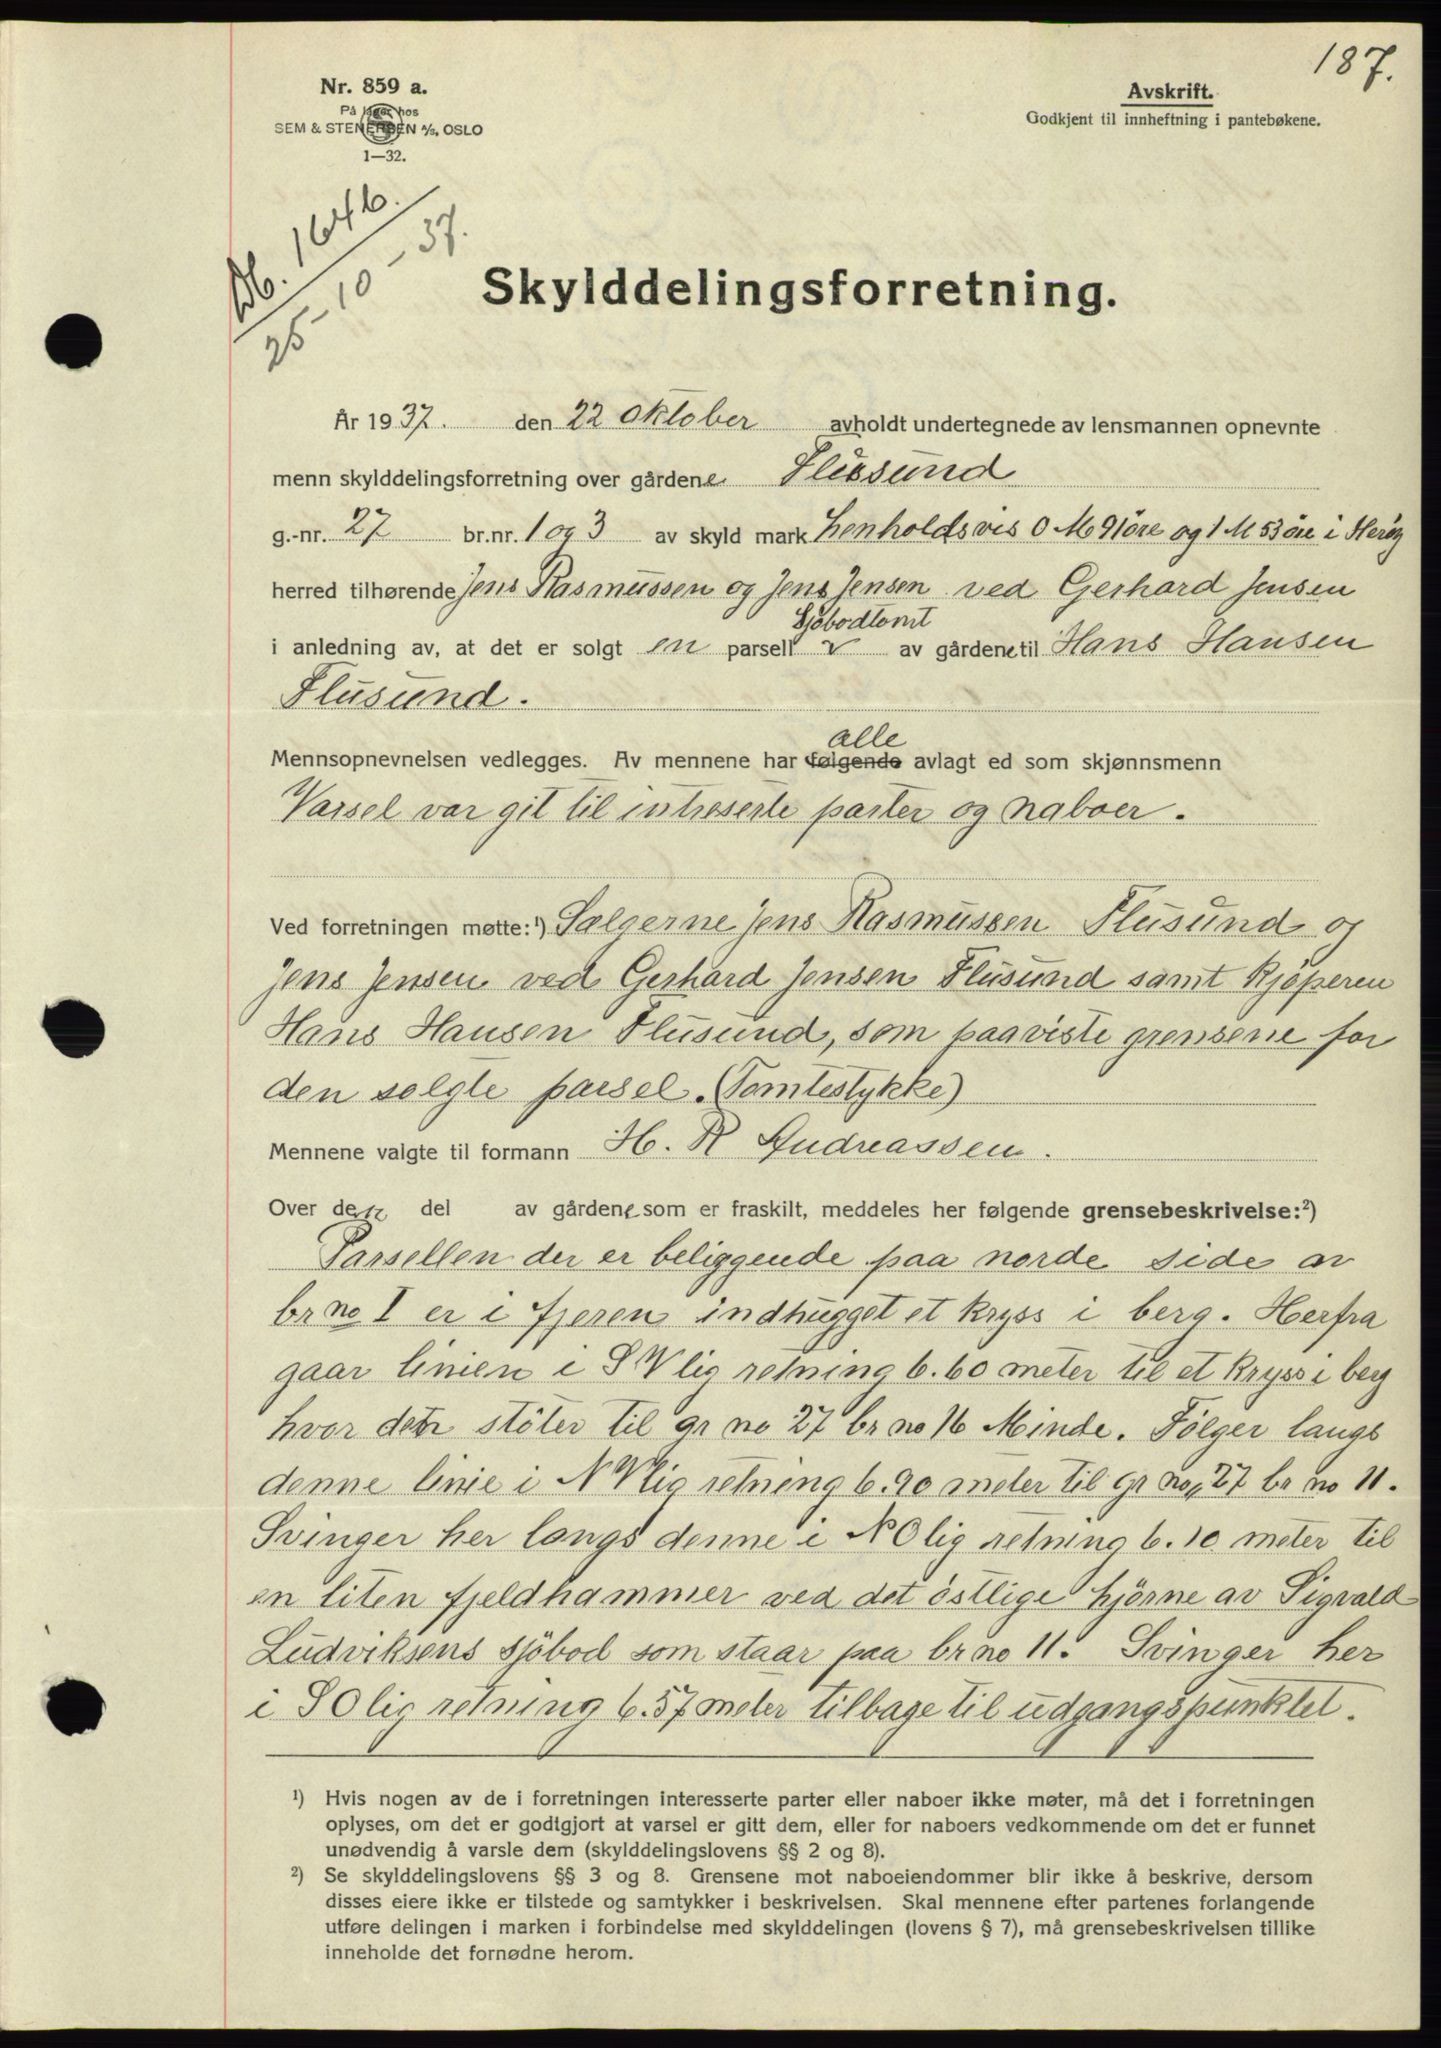 187.
Nr. 859 a.
På lager hos
SEM & STENERSEN A/S, OSLO
1—32.
Avskrift.
Godkjent til innheftning i pantebøkene.
Db. 1646.
25-10-37.
Skylddelingsforretning.
År 1937. den 22 oktober avholdt undertegnede av lensmannen opnevnte
menn skylddelingsforretning over gårdene Flusund
g.-nr. 27 br.nr. 1 og 3 av skyld mark henholdsvis 0 M 91 øre og 1 M 53 øre i Herøy
herred tilhørende Jens Rasmussen og Jens Jensen ved Gerhard Jensen
Sjøbodtomt
i anledning av, at det er solgt en parsell v av gårdene til Hans Hansen
Flusund.
alle
Mennsopnevnelsen vedlegges. Av mennene har følgende avlagt ed som skjønnsmenn
Varsel var git til intreserte parter og naboer.
Ved forretningen møtte:¹) Sælgerne Jens Rasmussen Flusund og
Jens Jensen ved Gerhard Jensen Flusund samt kjøperen
Hans Hansen Flusund, som paaviste grensene for
den solgte parsel. (Tomtestykke)
Mennene valgte til formann H. R Andreassen.
Over den del av gårdene som er fraskilt, meddeles her følgende grensebeskrivelse:²)
Parsellen der er beliggende paa norde side av
br no I er i fjæren indhugget et kryss i berg. Herfra
gaar linien i S V lig retning 6.60 meter til et kryss i berg
hvor den støter til gr no 27 br no 16 Minde. Følger langs
denne linie i N V lig retning 6.90 meter til gr no 27 br no 11.
Svinger her langs denne i N O lig retning 6.10 meter til
en liten fjeldhammer ved det østlige hjørne av Sigvald
Ludviksens sjøbod som staar paa br no 11. Svinger her
i S O lig retning 6.57 meter tilbage til udgangspunktet.
¹) Hvis nogen av de i forretningen interesserte parter eller naboer ikke møter, må det i forretningen
oplyses, om det er godtgjort at varsel er gitt dem, eller for naboers vedkommende om det er funnet
unødvendig å varsle dem (skylddelingslovens §§ 2 og 8).
²) Se skylddelingslovens §§ 3 og 8. Grensene mot naboeiendommer blir ikke å beskrive, dersom
disses eiere ikke er tilstede og samtykker i beskrivelsen. Skal mennene efter partenes forlangende
utføre delingen i marken i forbindelse med skylddelingen (lovens § 7), må grensebeskrivelsen tillike
inneholde det fornødne herom.